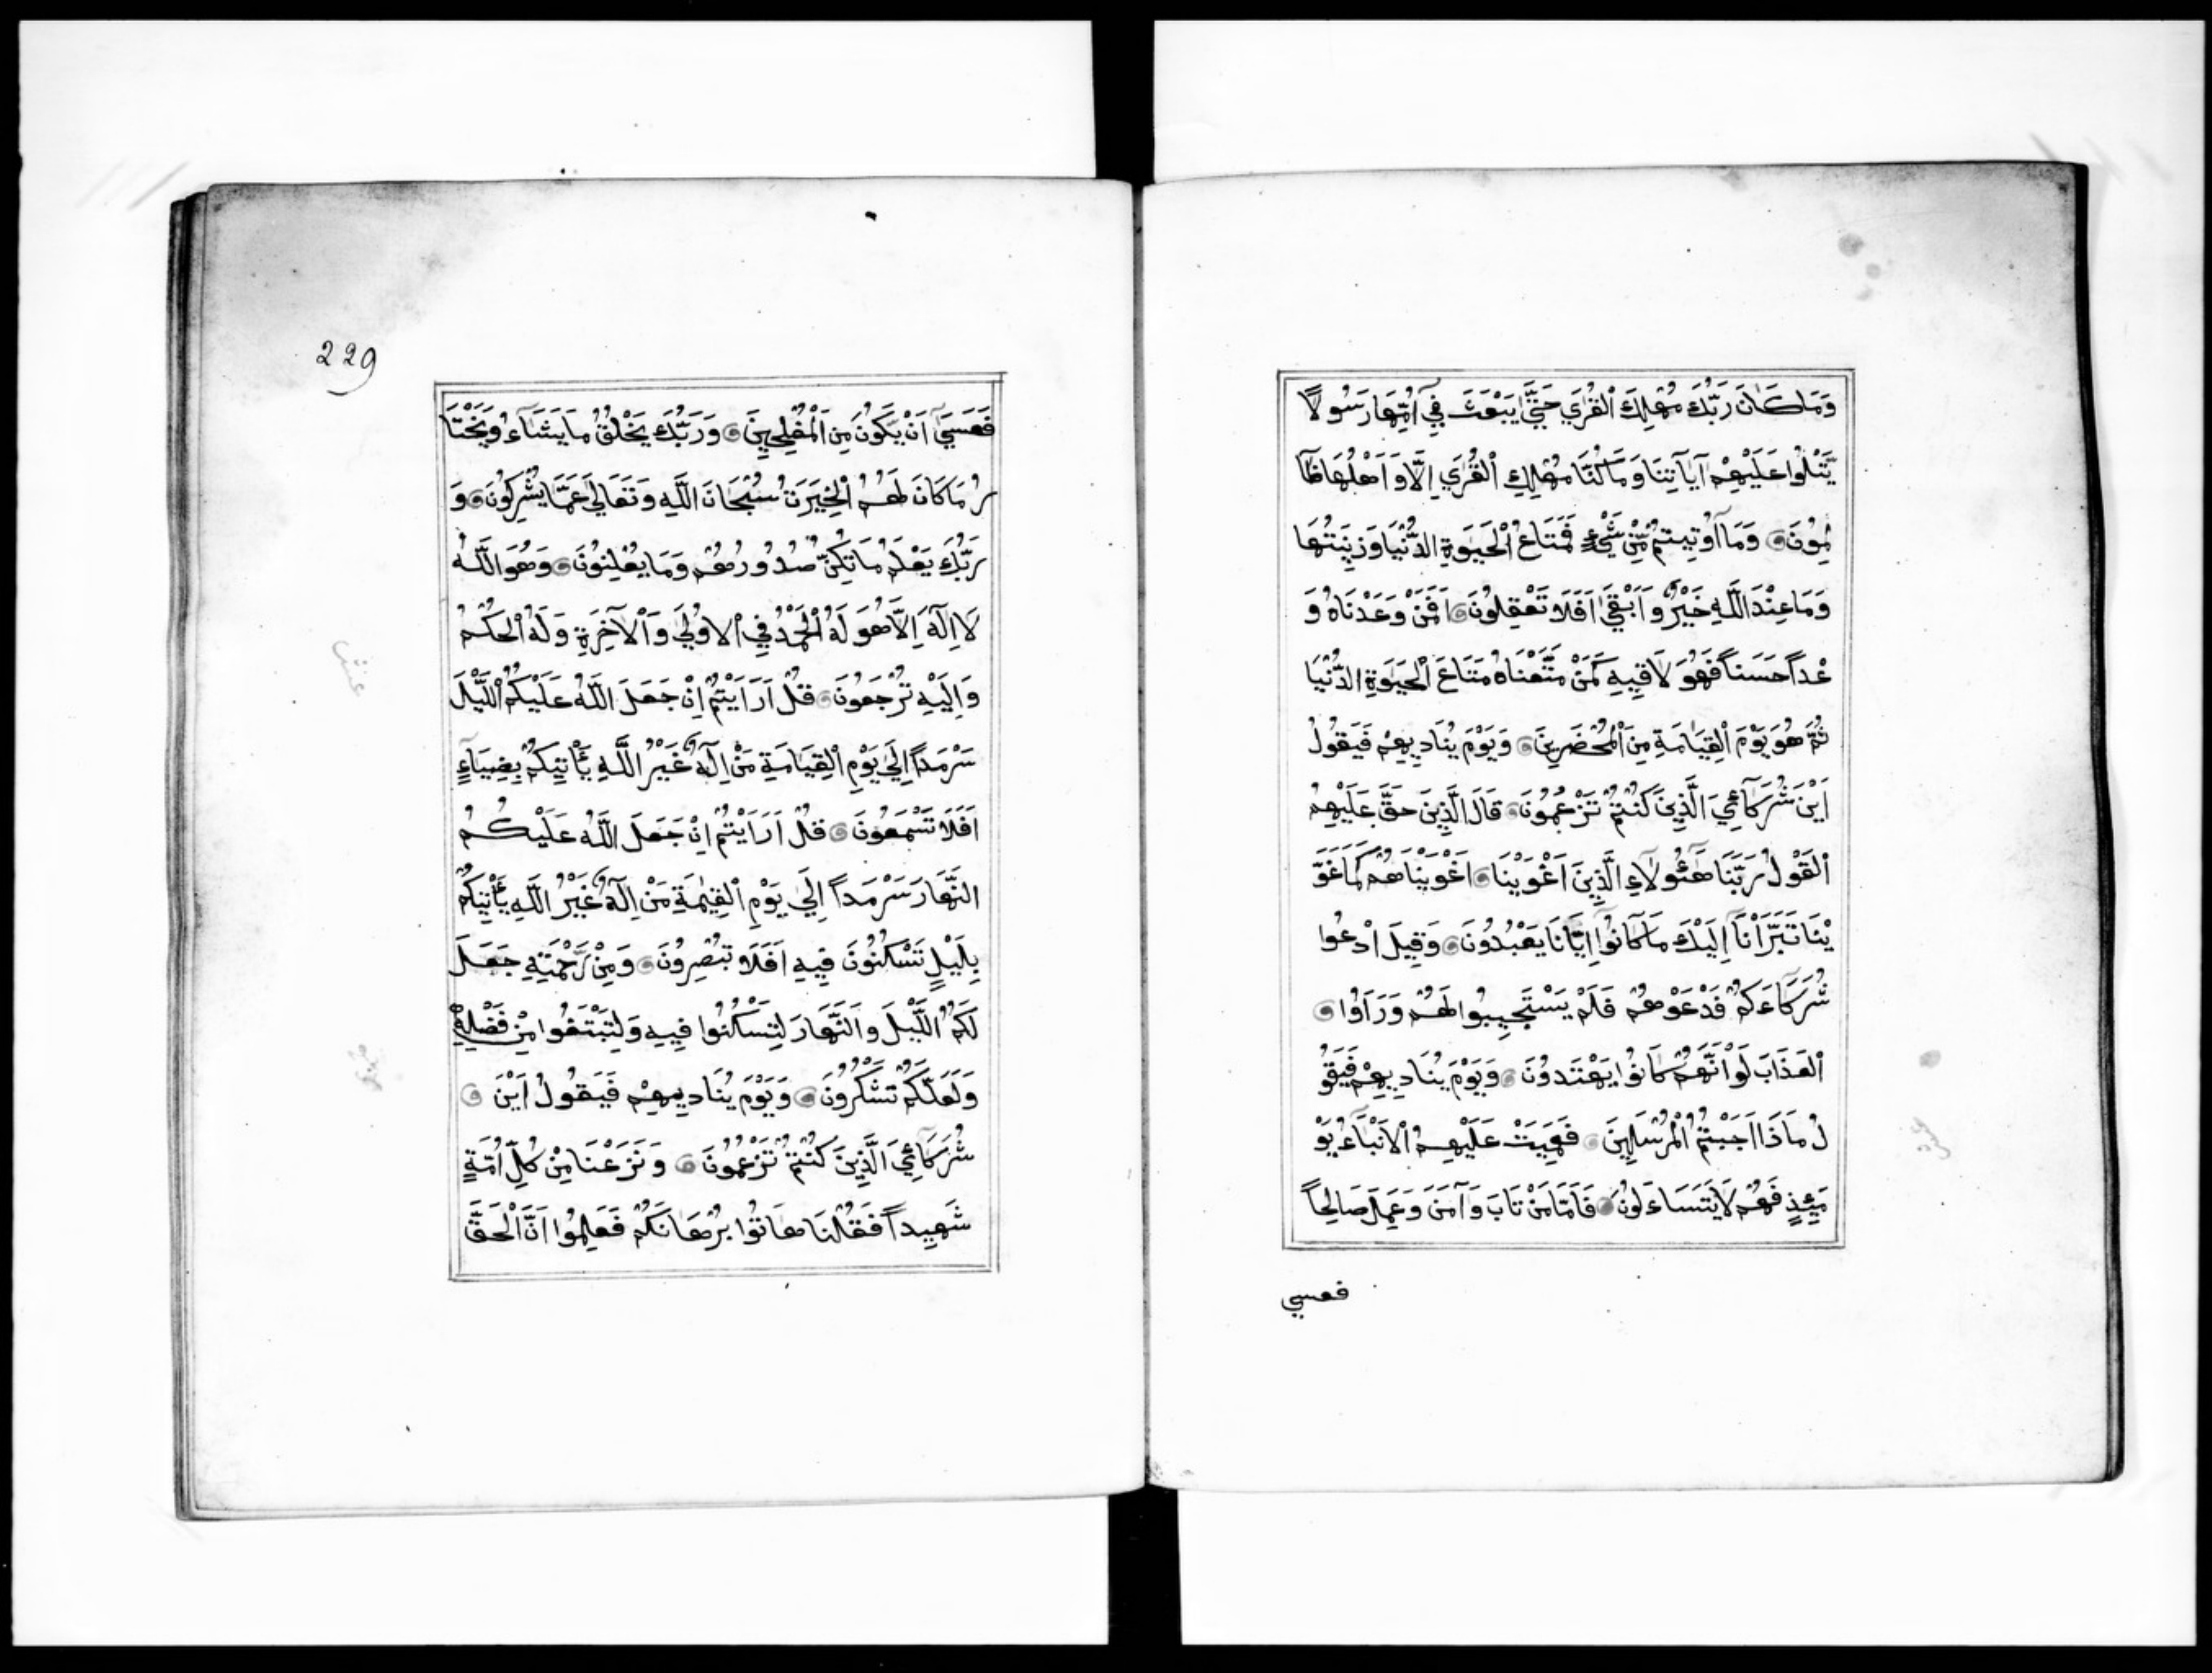 وَمَاكَانَ رَبُّكَ مُهْلِكَ الْقُرَي حَتَّي يَبْعَثَ فِي اُمِّهَا رَسُولاً
يَتْلُوا عَلَيْهِمْ آيَاتِنَا وَمَا كُنَّا مُهْلِكِي الْقُرَي اِلَّا وَاَهْلُهَا ظَا
لِمُونَ وَمَا اُوتِيتُمْ مِّنْ شَيْءٍ فَمَتَاعُ الْحَيَوةِ الدُّنْيَا وَزِينَتُهَا
وَمَا عِنْدَ اللَّهِ خَيْرٌ وَاَبْقَي اَفَلَا تَعْقِلُونَ اَفَمَنْ وَعَدْنَاهُ وَ
عْداً حَسَناً فَهُوَ لَاقِيهِ كَمَنْ مَتَّعْنَاهُ مَتَاعَ الْحَيَوةِ الدُّنْيَا
ثُمَّ هُوَ يَوْمَ الْقِيَامَةِ مِنَ الْمُحْضَرِينَ وَيَوْمَ يُنَادِيهِمْ فَيَقُولُ
اَيْنَ شُرَكَآئِيَ الَّذِينَ كُنْتُمْ تَزْعُمُونَ قَالَ الَّذِينَ حَقَّ عَلَيْهِمُ
الْقَوْلُ رَبَّنَا هَؤُلَاءِ الَّذِينَ اَغْوَيْنَا اَغْوَيْنَاهُمْ كَمَا غَوَ
يْنَا تَبَرَّاْنَا اِلَيْكَ مَا كَانُوا اِيَّانَا يَعْبُدُونَ وَقِيلَ ادْعُوا
شُرَكَاءَكُمْ فَدَعَوْهُمْ فَلَمْ يَسْتَجِيبُوا لَهُمْ وَرَاَوُا
الْعَذَابَ لَوْ اَنَّهُمْ كَانُوا يَهْتَدُونَ وَيَوْمَ يُنَادِيهِمْ فَيَقُو
لُ مَاذَا اَجَبْتُمُ الْمُرْسَلِينَ فَعَمِيَتْ عَلَيْهِمُ الْاَنْبَاءُ يَوْ
مَئِذٍ فَهُمْ لَا يَتَسَاءَلُونَ فَاَمَّا مَنْ تَابَ وَآمَنَ وَعَمِلَ صَالِحاً
فعسي
229
فَعَسَي اَنْ يَكُونَ مِنَ الْمُفْلِحِينَ وَرَبُّكَ يَخْلُقُ مَا يَشَاءُ وَيَخْتَا
رُ مَا كَانَ لَهُمُ الْخِيَرَةُ سُبْحَانَ اللَّهِ وَتَعَالَي عَمَّا يُشْرِكُونَ وَ
رَبُّكَ يَعْلَمُ مَا تُكِنُّ صُدُورُهُمْ وَمَا يُعْلِنُونَ وَهُوَ اللَّهُ
لَا اِلَهَ اِلَّا هُوَ لَهُ الْحَمْدُ فِي الْاُولَي وَالْآخِرَةِ وَلَهُ الْحُكْمُ
وَاِلَيْهِ تُرْجَعُونَ قُلْ اَرَاَيْتُمْ اِنْ جَعَلَ اللَّهُ عَلَيْكُمُ اللَّيْلَ
سَرْمَداً اِلَي يَوْمِ الْقِيَامَةِ مَنْ اِلَهٌ غَيْرُ اللَّهِ يَاْتِيكُمْ بِضِيَاءٍ
اَفَلَا تَسْمَعُونَ قُلْ اَرَاَيْتُمْ اِنْ جَعَلَ اللَّهُ عَلَيْكُمُ
النَّهَارَ سَرْمَداً اِلَي يَوْمِ الْقِيمَةِ مَنْ اِلَهٌ غَيْرُ اللَّهِ يَاْتِيكُمْ
بِلَيْلٍ تَسْكُنُونَ فِيهِ اَفَلَا تُبْصِرُونَ وَمِنْ رَّحْمَتِهِ جَعَلَ
لَكُمُ اللَّيْلَ وَالنَّهَارَ لِتَسْكُنُوا فِيهِ وَلِتَبْتَغُوا مِنْ فَضْلِهِ
وَلَعَلَّكُمْ تَشْكُرُونَ وَيَوْمَ يُنَادِيهِمْ فَيَقُولُ اَيْنَ
شُرَكَآئِيَ الَّذِينَ كُنْتُمْ تَزْعُمُونَ وَنَزَعْنَا مِنْ كُلِّ اُمَّةٍ
شَهِيداً فَقُلْنَا هَاتُوا بُرْهَانَكُمْ فَعَلِمُوا اَنَّ الْحَقَّ